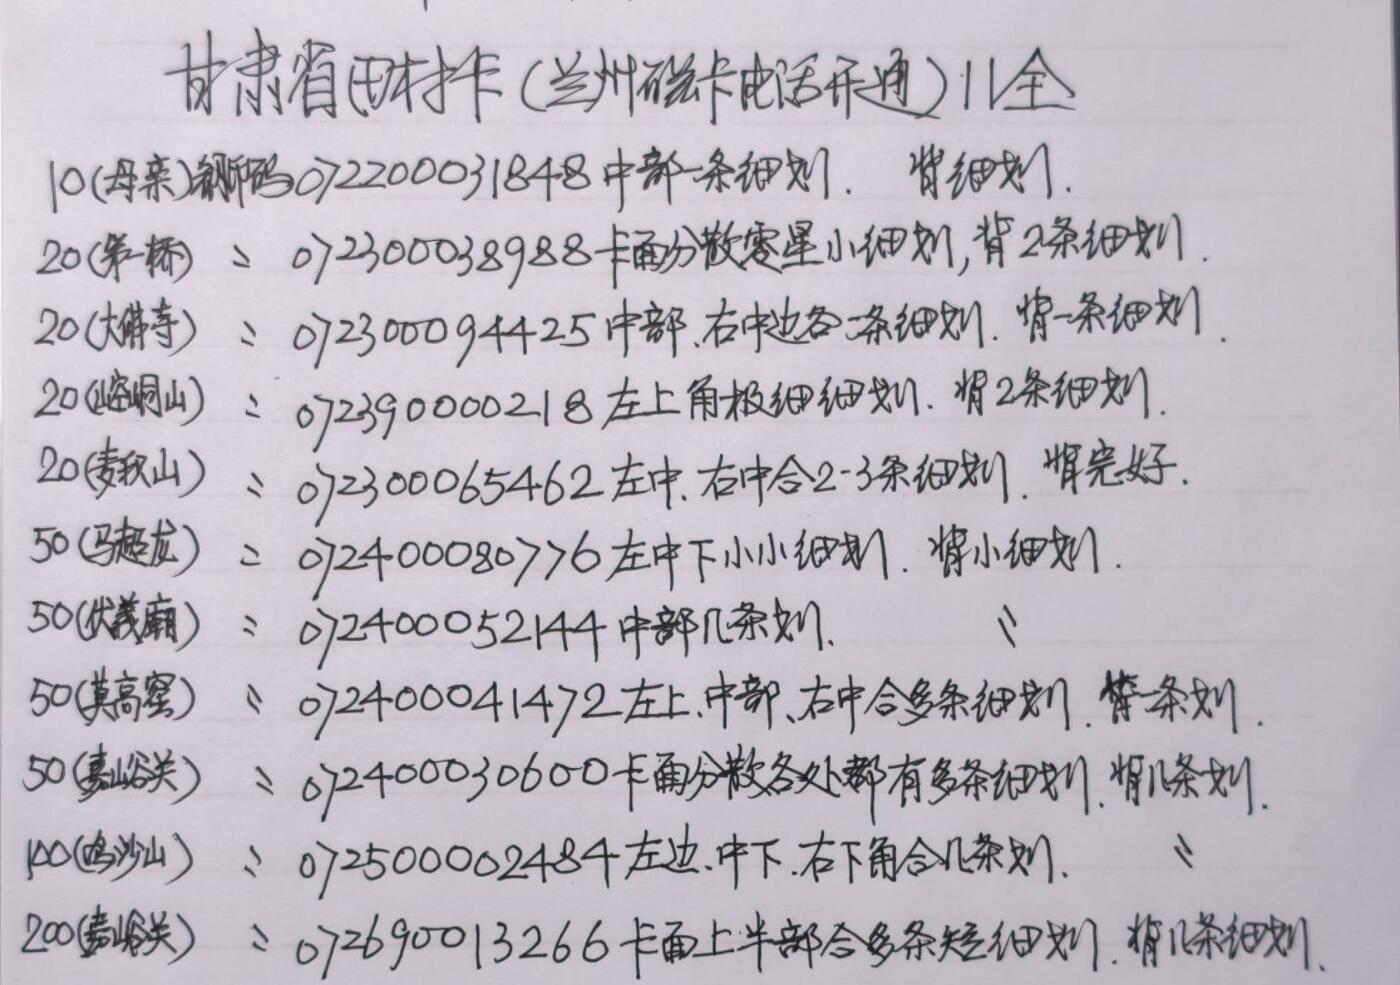 甘肃省田村卡(兰州磁卡电话开通)11全
10(母亲)编码0722000031848中部一条细划. 背细划.
20(第一桥) 〃 0723000038988卡面分散零星小细划,背2条细划.
20(大佛寺) 〃 0723000094425中部、右中边各一条细划. 背一条细划.
20(崆峒山) 〃 0723900000218左上角极细细划. 背2条细划.
20(麦积山) 〃 0723000065462左中、右中合2-3条细划. 背完好.
50(马超龙) 〃 0724000080776左中下小小细划. 背小细划.
50(伏羲廟) 〃 0724000052144中部几条划. 〃
50(莫高窟) 〃 0724000041472左上、中部、右中合多条细划. 背一条划.
50(嘉峪关) 〃 0724000030600卡面分散各处都有多条细划. 背几条划.
100(鸣沙山) 〃 0725000002484左边、中下、右下角合几条划. 〃
200(嘉峪关) 〃 0726900013266卡面上半部合多条短细划. 背几条细划.